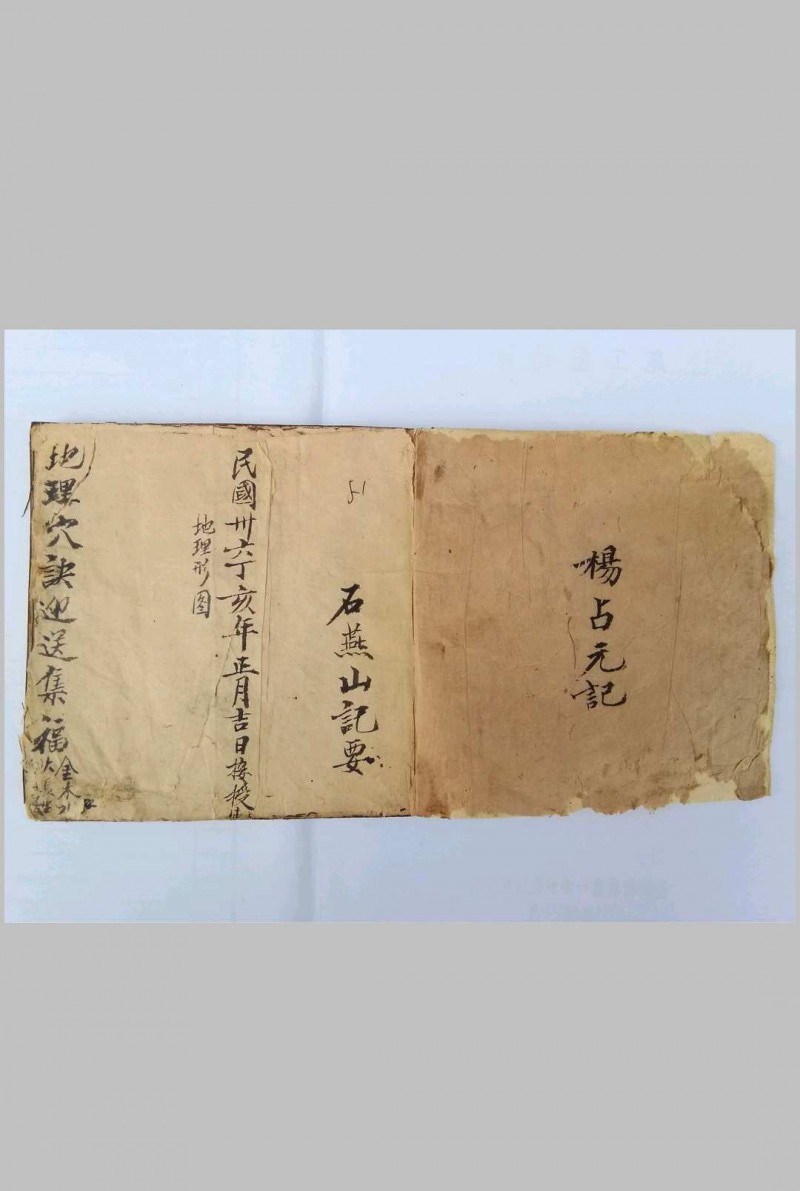 楊占元記
石燕山記要
民國卅六丁亥年正月吉日接授
地理形图
地理穴訣迎送集福
金木